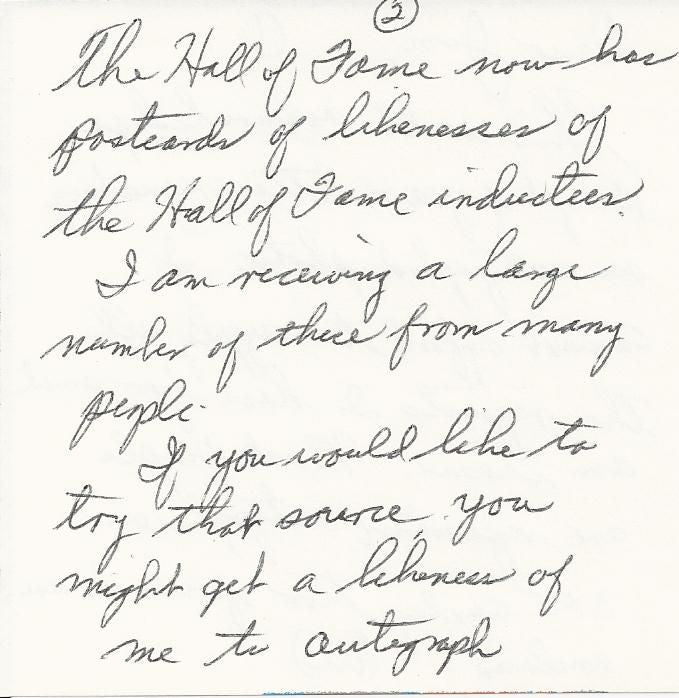 2
The Hall of Fame now has
postcards of likenesses of
the Hall of Fame inductees.
I am receiving a large
number of these from many
people.
If you would like to
try that source, you
might get a likeness of
me to autograph